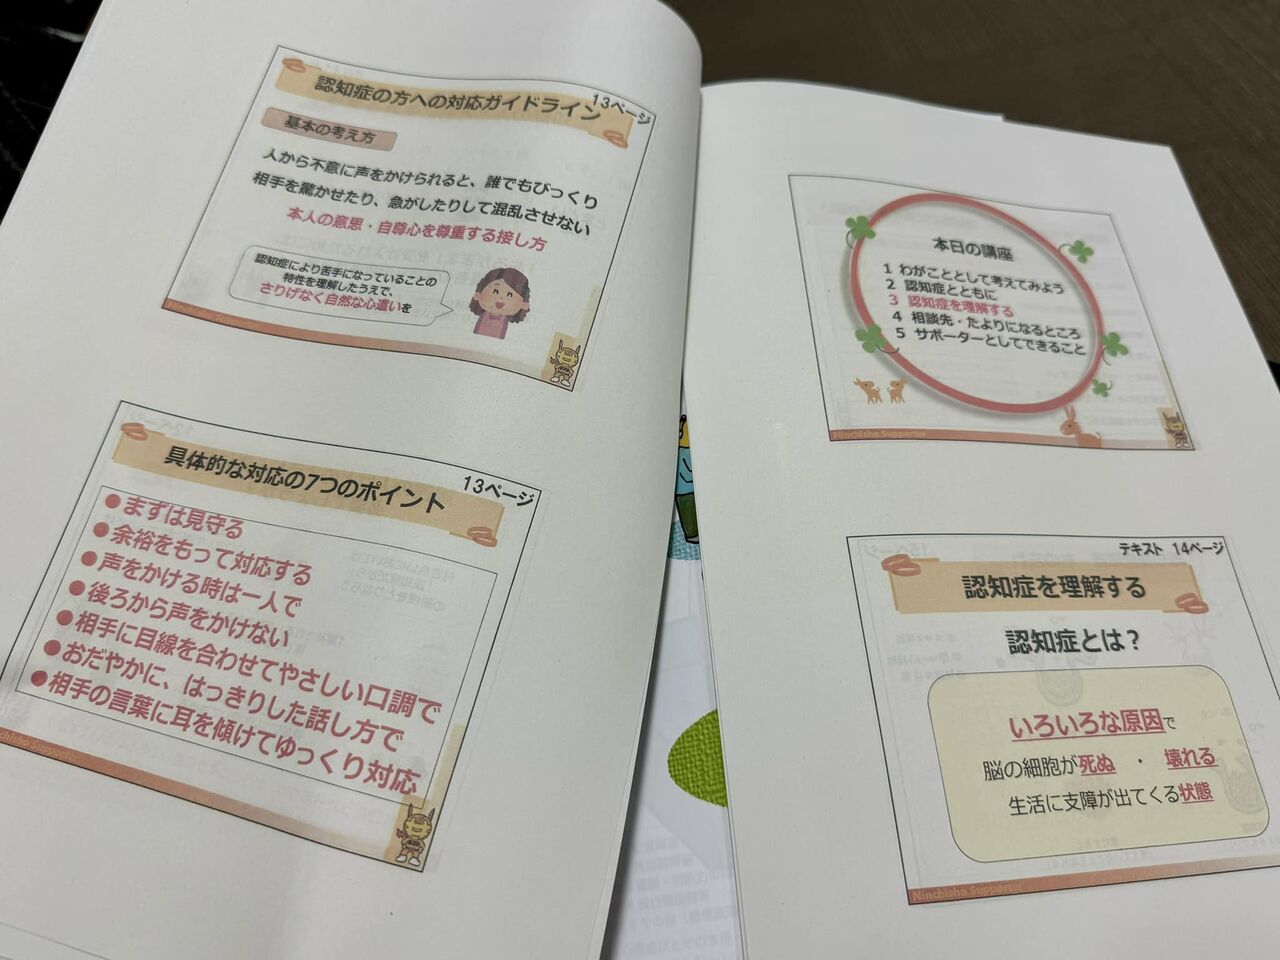 認知症の方への対応ガイドライン
13ページ
基本の考え方
人から不意に声をかけられると、誰でもびっくり
相手を驚かせたり、急がしたりして混乱させない
本人の意思・自尊心を尊重する接し方
認知症により苦手になっていることの
特性を理解したうえで、
さりげなく自然な心遣いを
具体的な対応の7つのポイント
13ページ
●まずは見守る
●余裕をもって対応する
●声をかける時は一人で
●後ろから声をかけない
●相手に目線を合わせてやさしい口調で
●おだやかに、はっきりした話し方で
●相手の言葉に耳を傾けてゆっくり対応
Supporter
本日の講座
1 わがこととして考えてみよう
2 認知症とともに
3 認知症を理解する
4 相談先・たよりになるところ
5 サポーターとしてできること
Ninchisho Supporter
テキスト 14ページ
認知症を理解する
認知症とは？
いろいろな原因で
脳の細胞が死ぬ ・ 壊れる
生活に支障が出てくる状態
Ninchisho Supporter